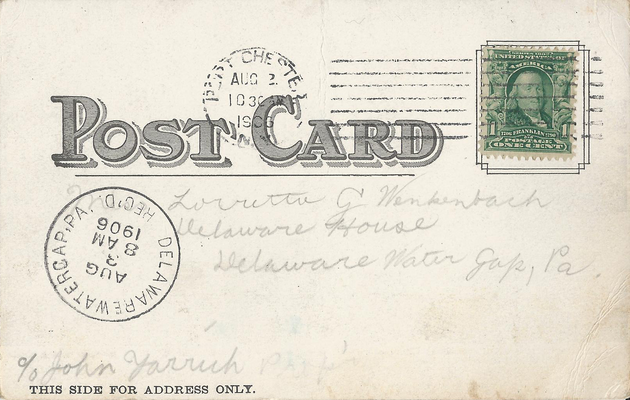 PORT CHESTER
AUG 2
10 30 AM
1906
N.Y.
SERIES 1902
UNITED STATES OF
AMERICA
1706 FRANKLIN 1790
1 1
POSTAGE
ONE CENT
POST CARD
Loretta G Wenkenbach
Delaware House
Delaware Water Gap, Pa.
DELAWARE WATER GAP, PA.
AUG
2
8 AM
1906
REC'D.
c/o John Yarrick
THIS SIDE FOR ADDRESS ONLY.